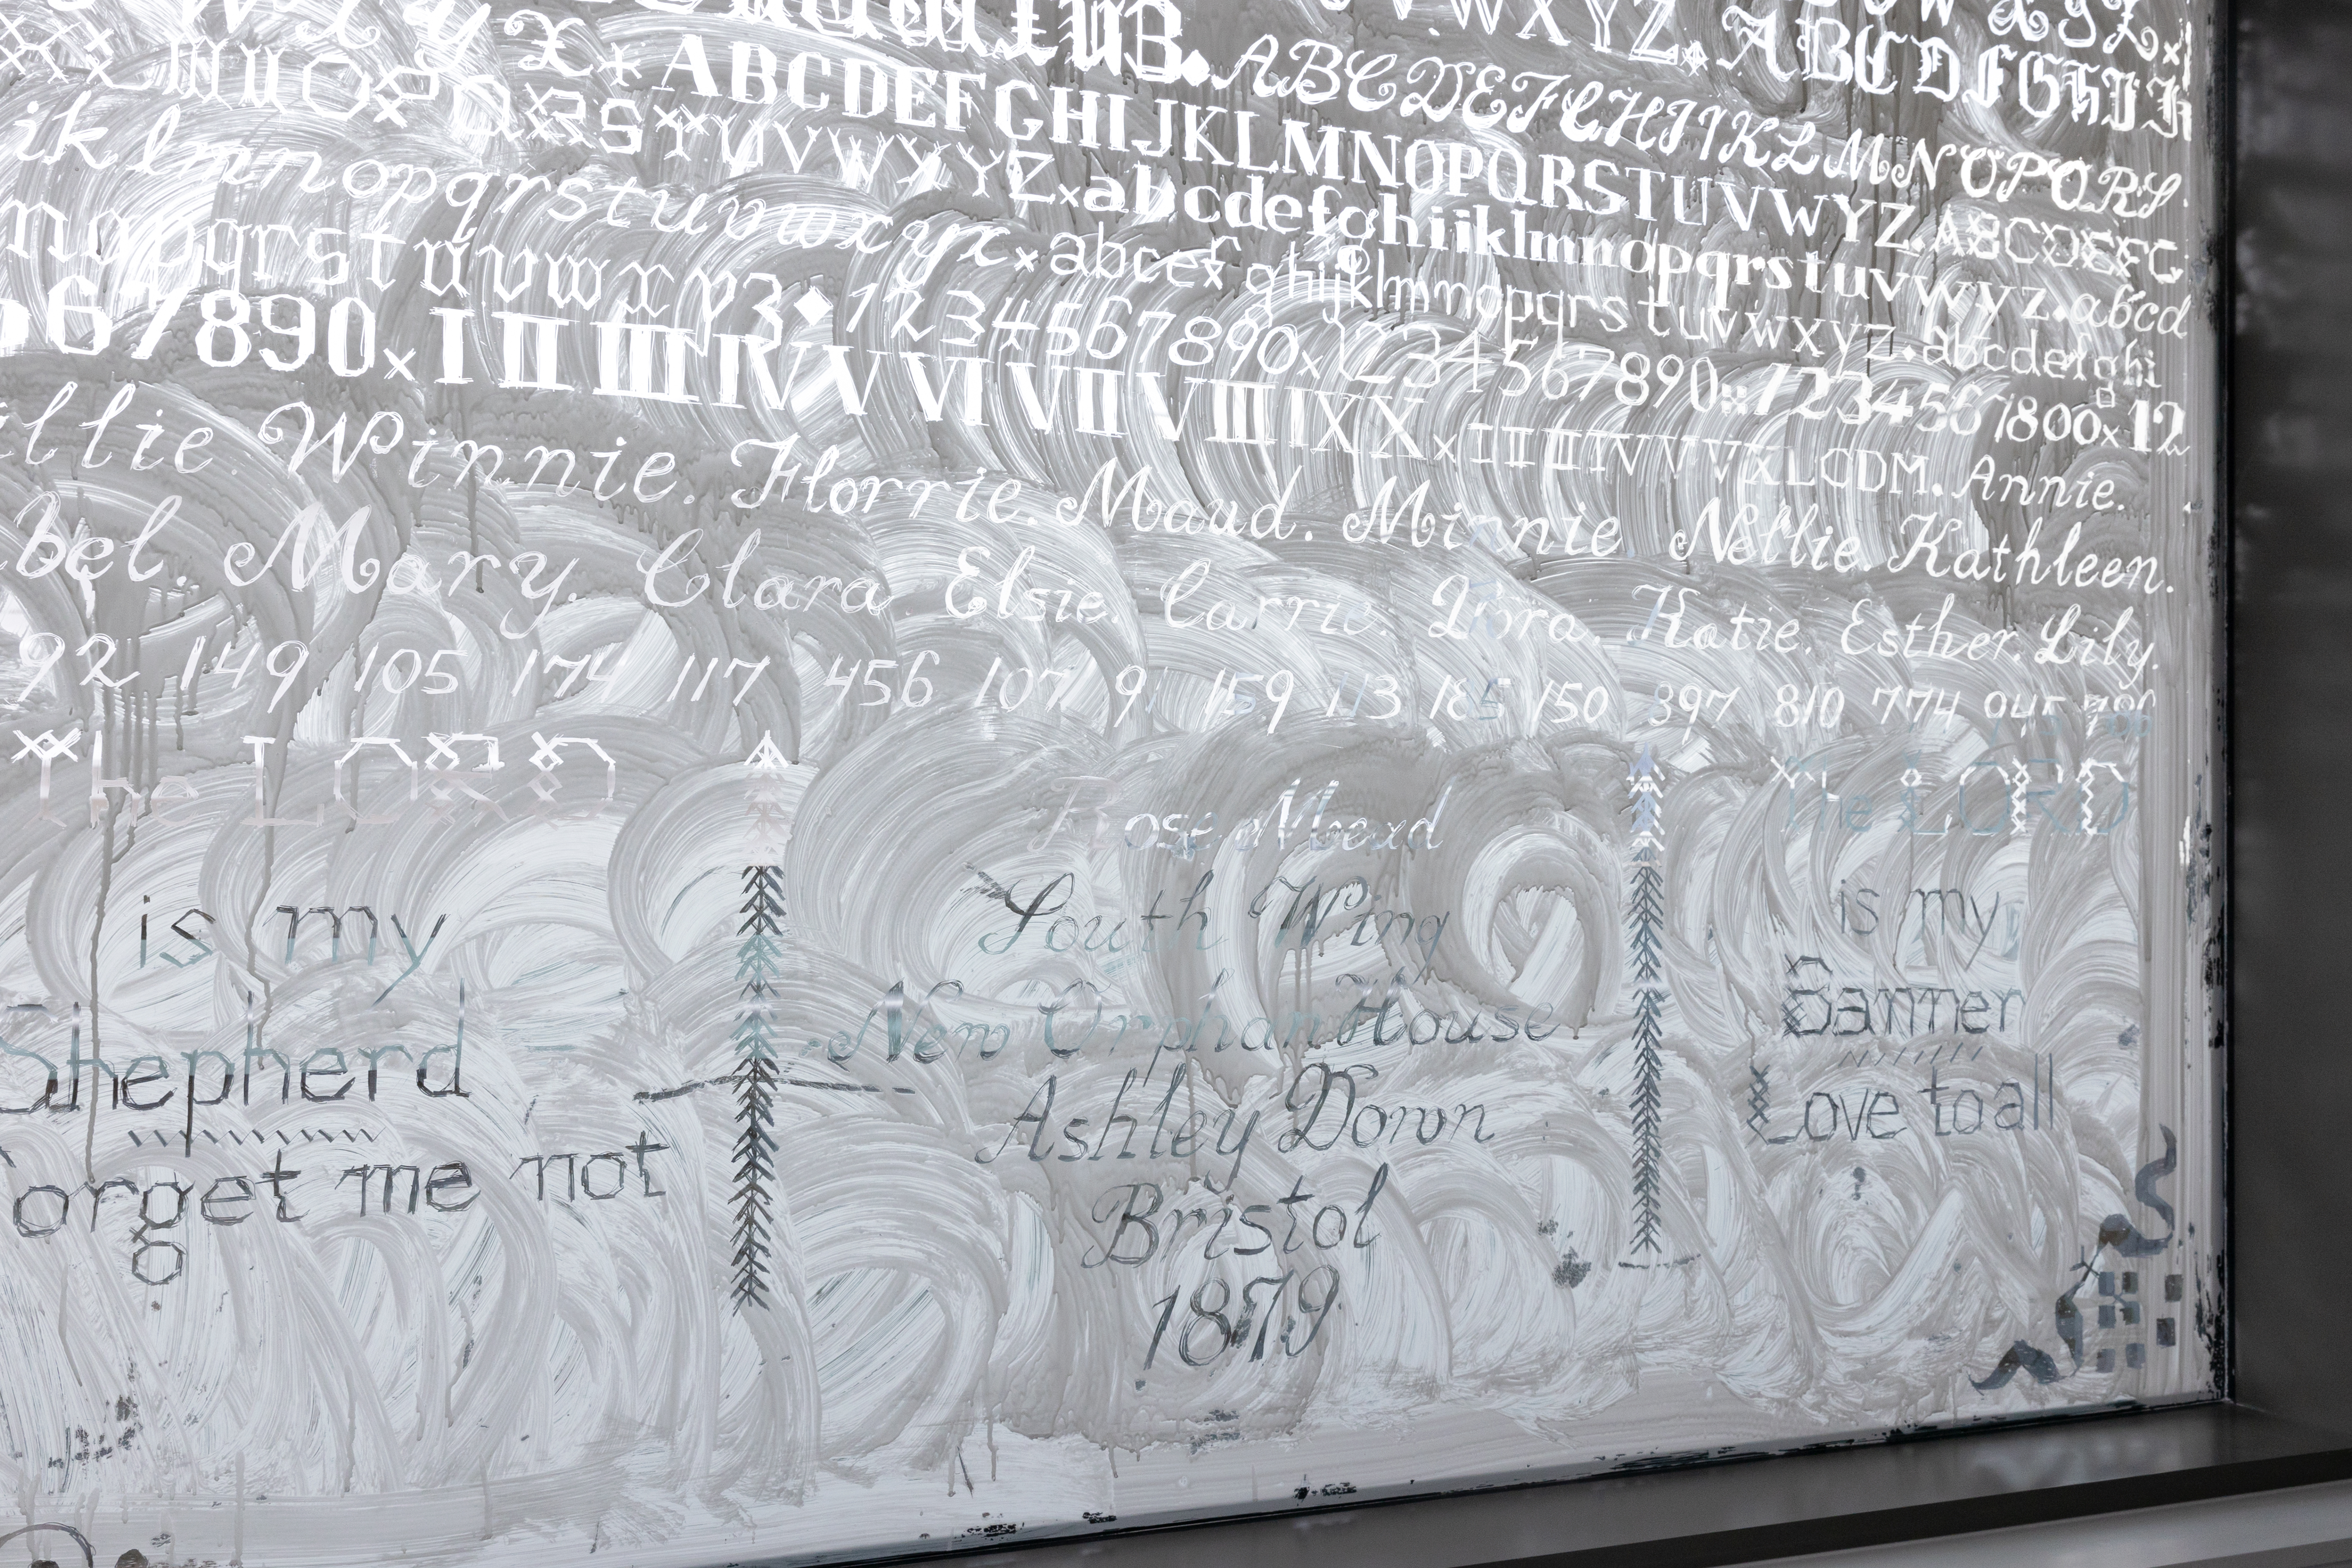 WXYZ.
ABCDEFGHIJK
ABCDEFGHIJKLMNOPQRS.
ABCDEFGHIJKLMNOPQRSTUVWYZ. ABCDEFG
QRSTUVWXYZ×abcdefghijklmnopqrstuvwyz. abcd
ik lmnopqrstuvwxyz×abcef ghijklmnopqrstuvwxyz. abcdefghi
nopqrstuvwx y3 1234567890×1234567890 1234567800×12
67890×I II III IV V VI VII VIII IX X × I II III IV V V V XLCDM. Annie.
llie. Winnie. Florrie. Maud. Minnie. Nellie. Kathleen.
bel. Mary. Clara Elsie. Carrie. Dora. Katie. Esther. Lily.
92 149 105 174 117 456 107 91 159 113 185 150 897 810 774 945 780
The LORD
is my
Shepherd
orget me not
Rose Mead
South Wing
New Orphan House
Ashley Down
Bristol
1879
The LORD
is my
Banner
Love to all